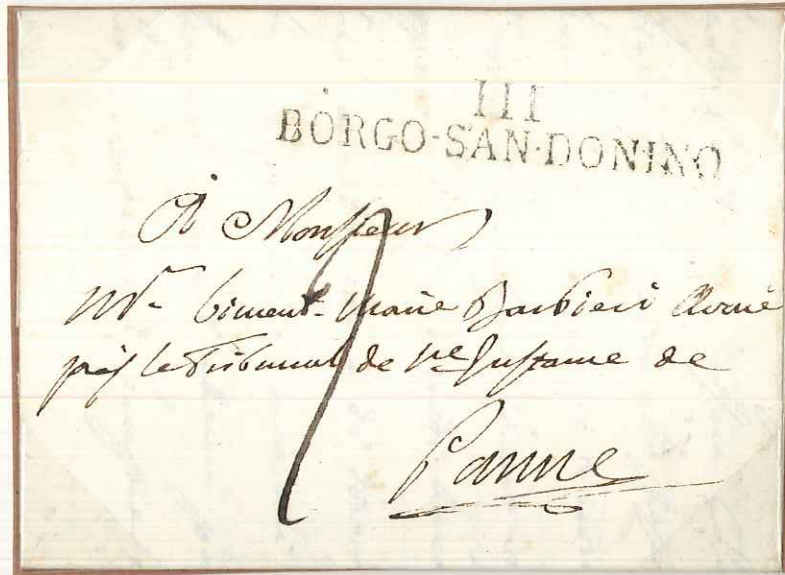 III
BORGO-SAN-DONINO
A Monsieur
Mr. Vincent-Marie Barbieri Avoué
près le Tribunal de 1re Instance de
Parme